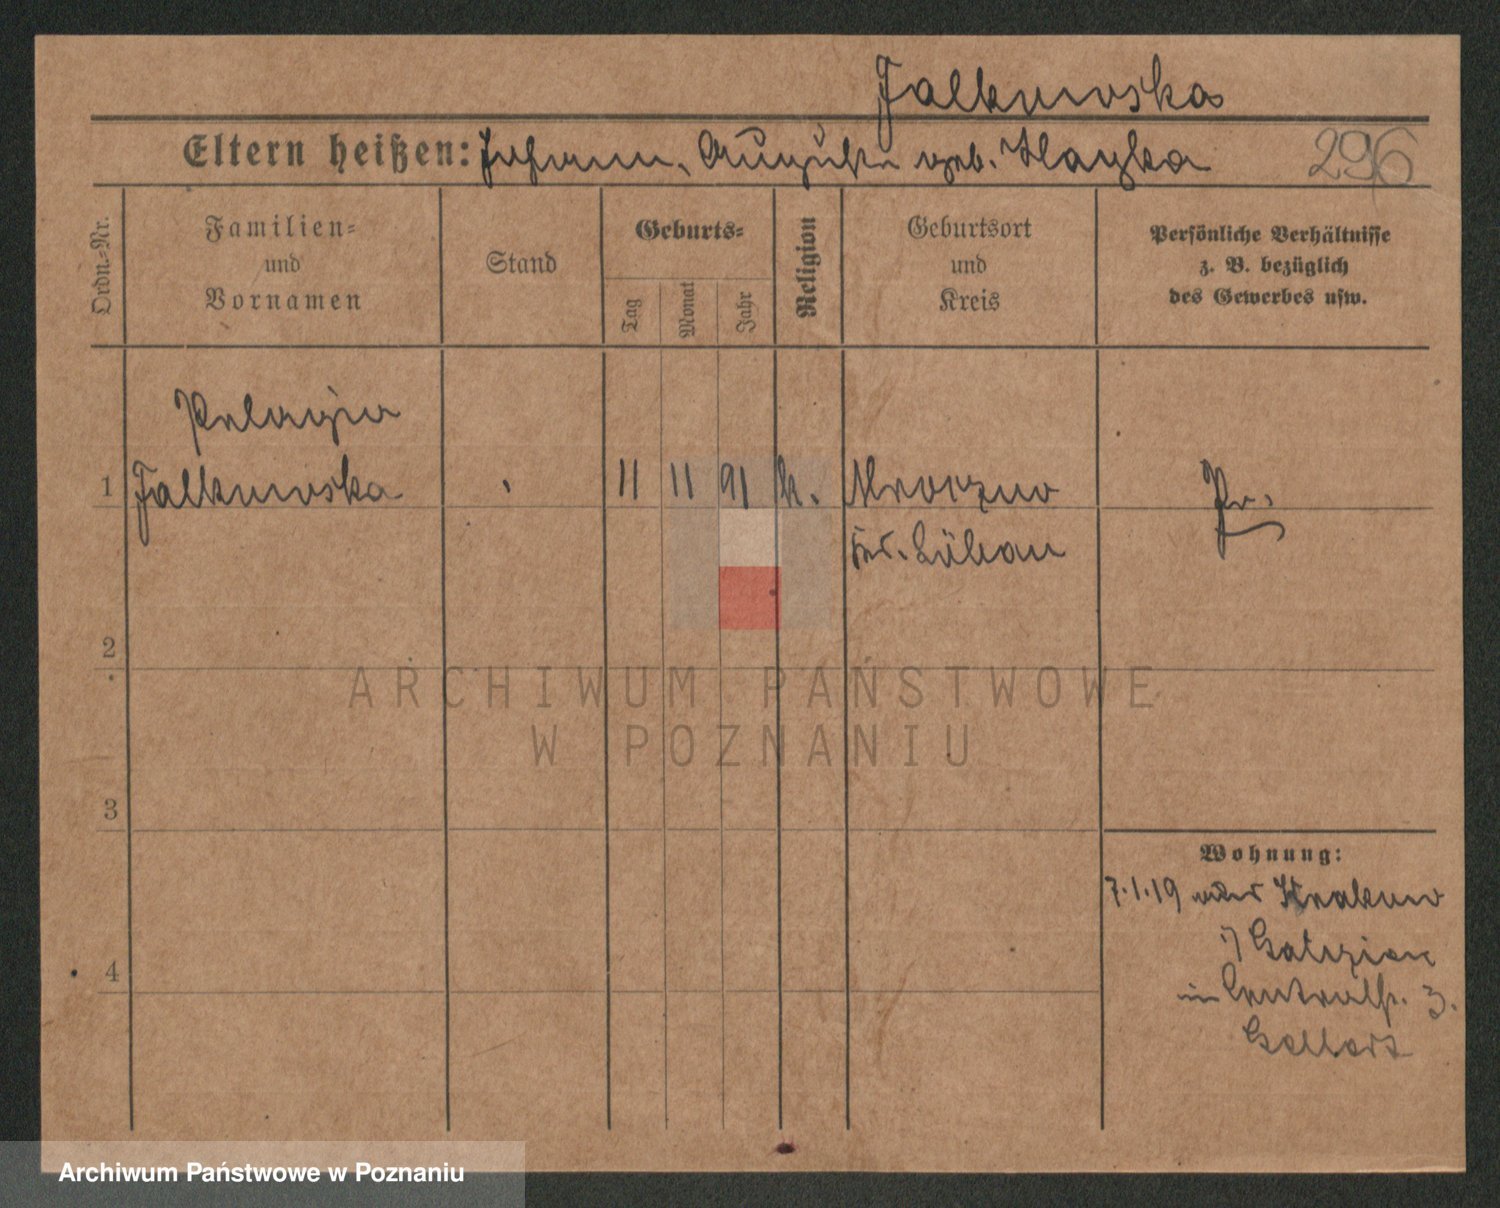 Falkowska
Eltern heißen: Johann, Auguste geb. Hayka
296
Ordn.-Nr.
Familien-
und
Vornamen
Stand
Geburts-
Tag
Monat
Jahr
Religion
Geburtsort
und
Kreis
Persönliche Verhältnisse
z. B. bezüglich
des Gewerbes usw.
Pelagia
1 Falkowska 11 11 91 k. Mroczno Pr.
Kr. Löbau
2
ARCHIWUM PAŃSTWOWE
W POZNANIU
3
Wohnung:
7.1.19 Krakow
Galizien
4
im 3.
Archiwum Państwowe w Poznaniu